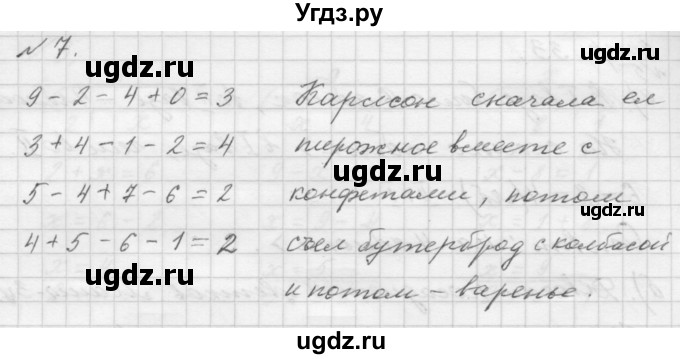 Угдз.ру
№ 7.
9 - 2 - 4 + 0 = 3
3 + 4 - 1 - 2 = 4
5 - 4 + 7 - 6 = 2
4 + 5 - 6 - 1 = 2
Карлсон сначала ел
пирожное вместе с
конфетами, потом
съел бутерброд с колбасой
и потом - варенье.
ugdz.ru
ugdz.ru
ugdz.ru
ugdz.ru
ugdz.ru
ugdz.ru
ugdz.ru